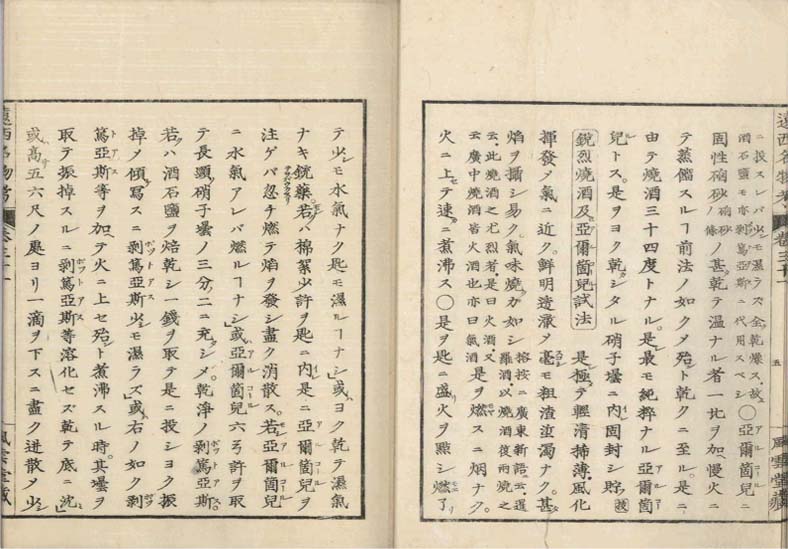 遠西名物考 卷三十一 五 風雲堂藏
ニ投スレバ少シモ濕ラズ全ク乾燥ス故ニ
酒石鹽モ亦剥篤亞斯ニ代用スベシ ○亞爾箇兒ニ
固性硇砂 硇砂ノ條 ノ甚乾テ温ナル者一匕ヲ加ヘ慢火ニ
テ蒸餾スルヿ前法ノ如クメ殆ト乾クニ至ル是ニ
由テ燒酒三十四度トナル是最モ純粹ナル亞爾箇
兒トス是ヲヨク乾シタル硝子壜ニ内レ固封シ貯
鋭烈燒酒及亞爾箇兒試法 是極テ輕清 薄風化
揮發ノ氣ニ近ク鮮明 澈メ毫モ粗渣 濁ナク甚
焰ヲ シ易ク氣味燒カ如シ 榕按ニ廣東新語ニ云 羅酒以燒酒復兩燒之
云此燒酒之尤烈者是曰火酒又云廣中燒酒皆火酒也亦曰氣酒 是ヲ燃スニ烟ナク
火ニ上セテ速ニ煮沸ス○是ヲ匙ニ盛リ火ヲ點シ燃了
テ少シモ水氣ナク匙モ濕ルヿナシ」或ハヨク乾テ濕氣
ナキ銃藥若クハ棉絮少許ヲ匙ニ内レ是ニ亞爾箇兒ヲ
注ゲバ忽チ燃テ焰ヲ發シ盡ク消散ス若シ亞爾箇兒
ニ水氣アレバ燃ルヿナシ」或ハ亞爾箇兒六弓許ヲ取
テ長頸硝子壜ノ三分ノ二ニ充シメ乾淨ノ剥篤亞斯
若クハ酒石鹽ヲ焙乾シ一錢ヲ取テ是ニ投シヨク振
掉メ傾ケ寫スニ剥篤亞斯少モ濕ラズ」或ハ右ノ如ク剥
篤亞斯等ヲ加ヘテ火ニ上セ殆ト煮沸スル時其壜ヲ
取テ振掉スルニ剥篤亞斯等溶化セズ乾テ底ニ沈ム」
或ハ高サ五六尺ノ處ヨリ一滴ヲ下スニ盡ク迸散メ少シ
遠西名物考 卷三十一 風雲堂藏